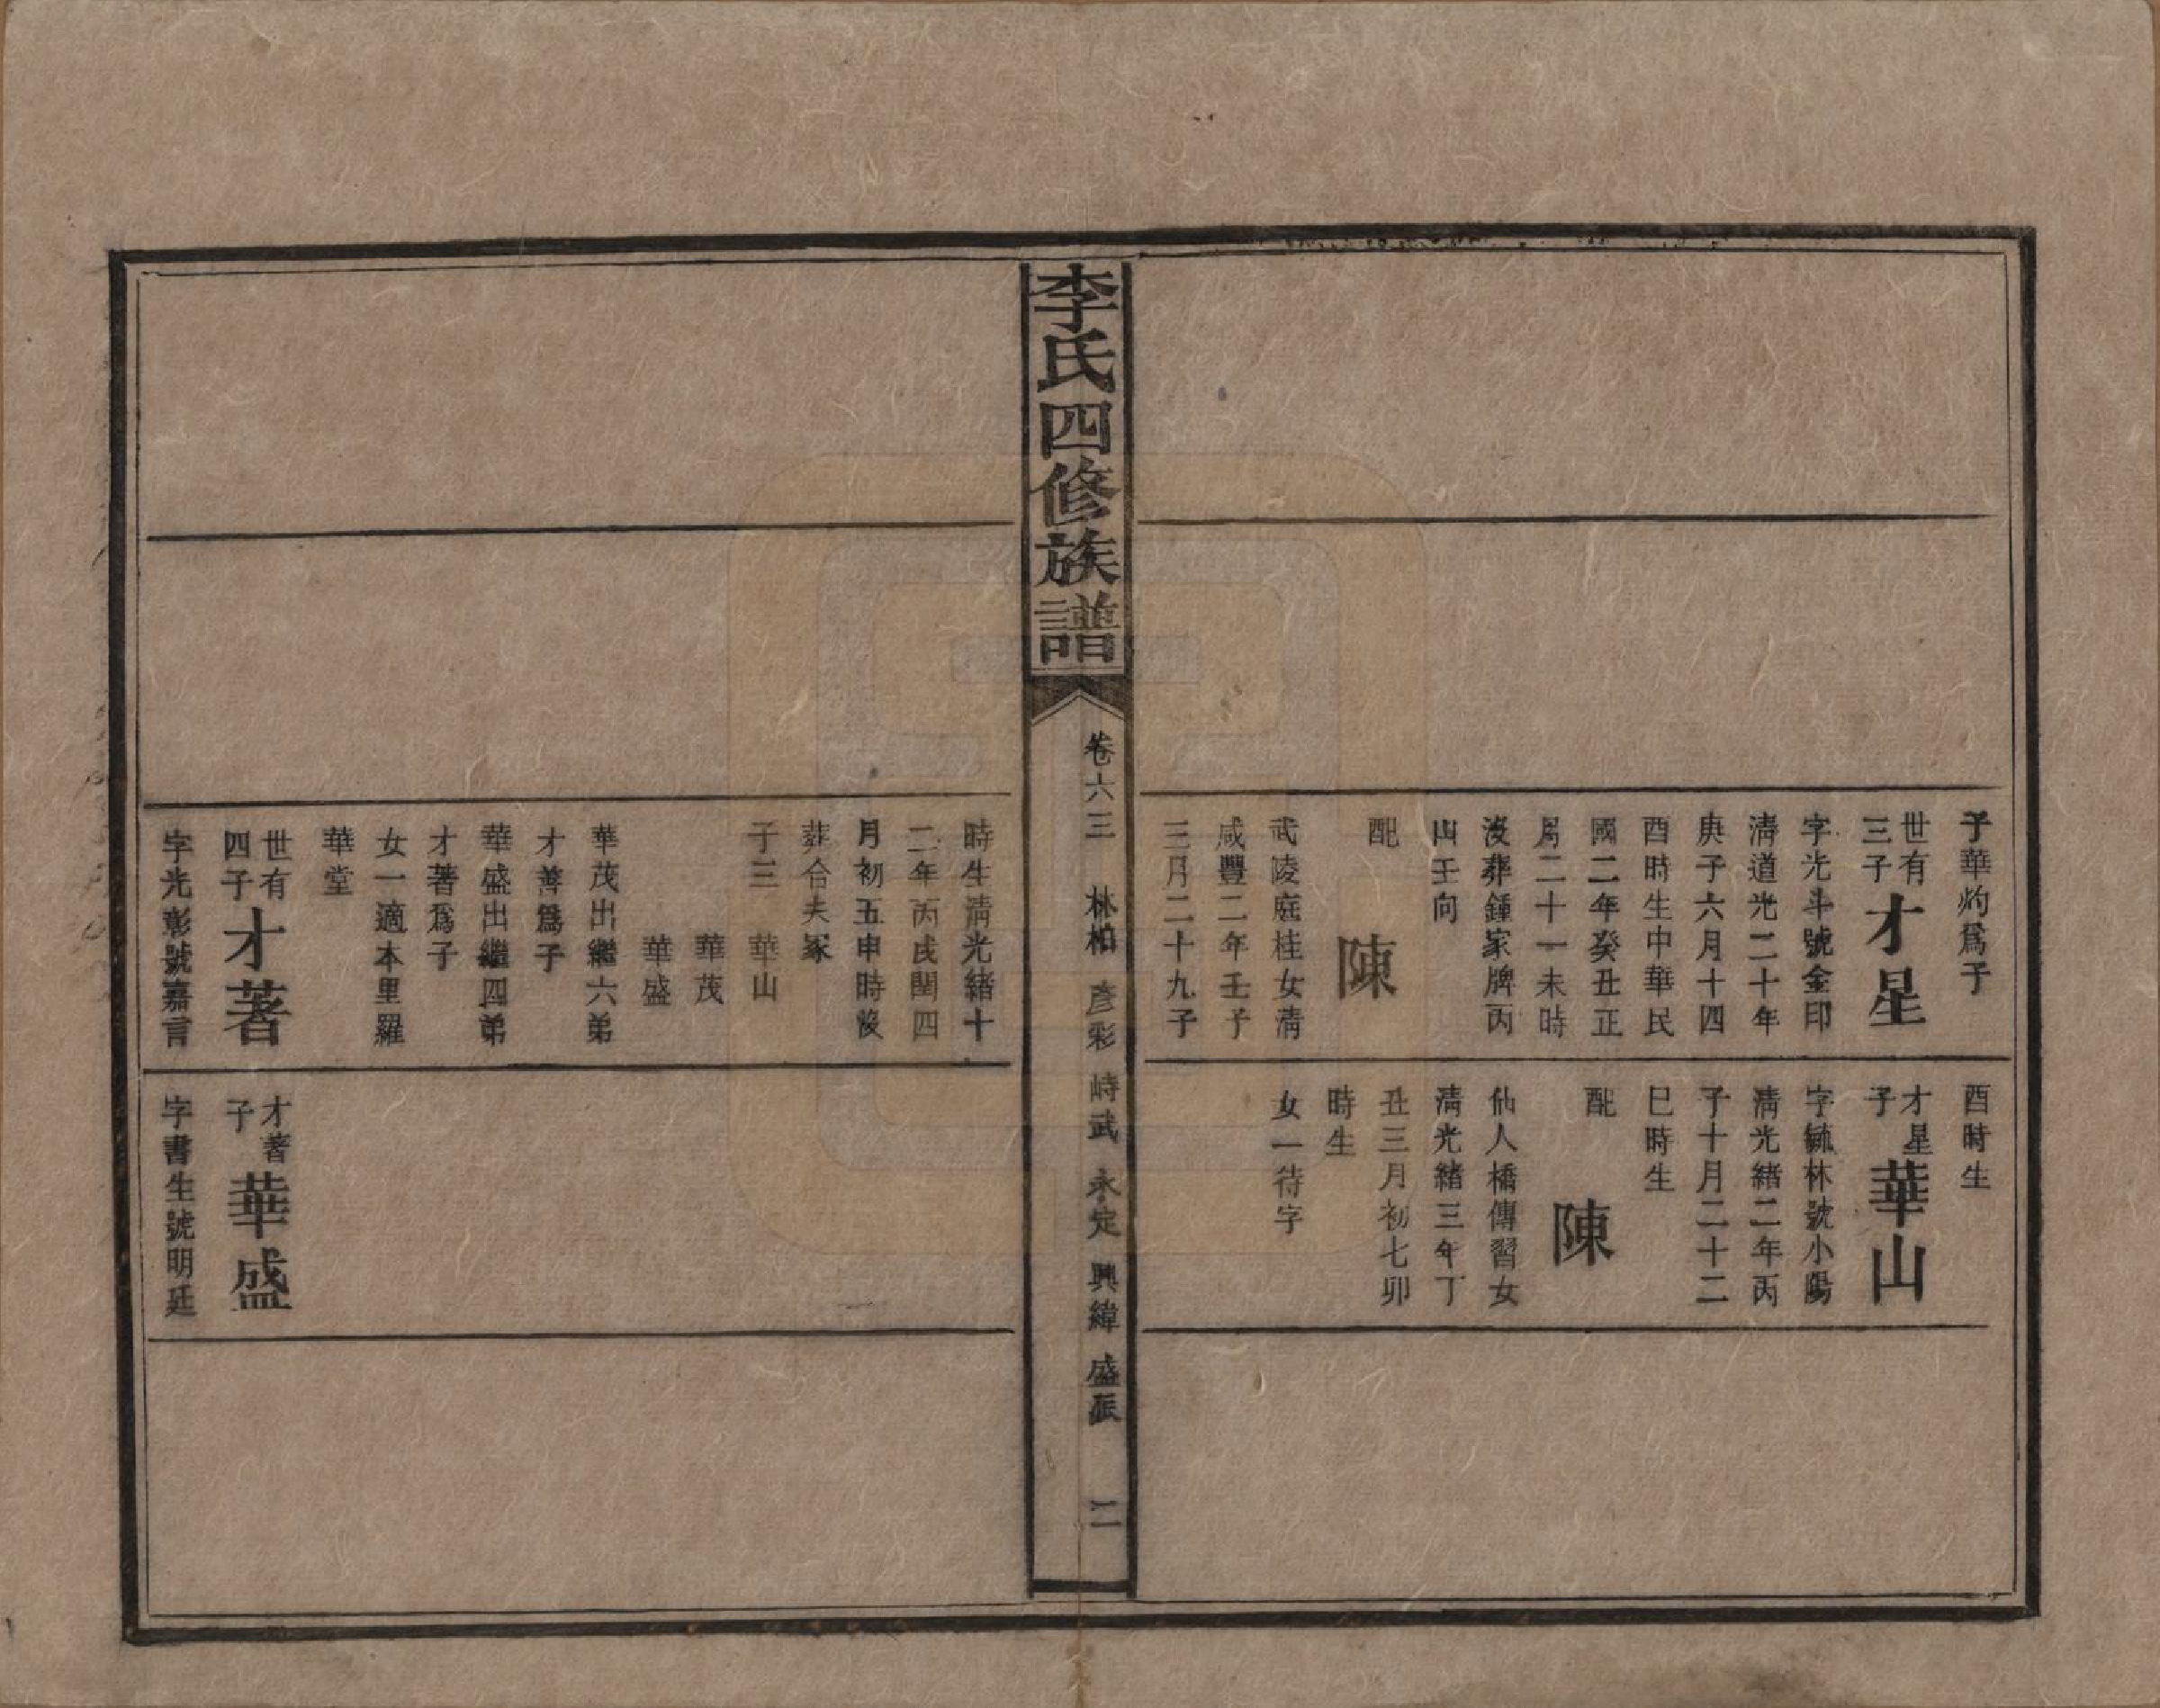 子華灼爲子
世有
三子
才星
字光斗號金印
清道光二十年
庚子六月十四
酉時生中華民
國二年癸丑正
月二十一未時
沒葬鍾家牌丙
山壬向
配
陳
武陵庭桂女清
咸豐二年壬子
三月二十九子
酉時生
才星
子
華山
字毓林號小陽
清光緒二年丙
子十月二十二
巳時生
配
陳
仙人橋傳習女
清光緒三年丁
丑三月初七卯
時生
女一待字
李氏四修族譜
卷六三 林柏 彥彩 時武 永定 興緯 盛派 二
時生清光緒十
二年丙戌閏四
月初五申時歿
葬合夫冢
子三 華山
華茂
華盛
華茂出繼六弟
才善爲子
華盛出繼四弟
才著爲子
女一適本里羅
華堂
世有
四子
才著
字光彰號嘉言
才著
子
華盛
字書生號明廷